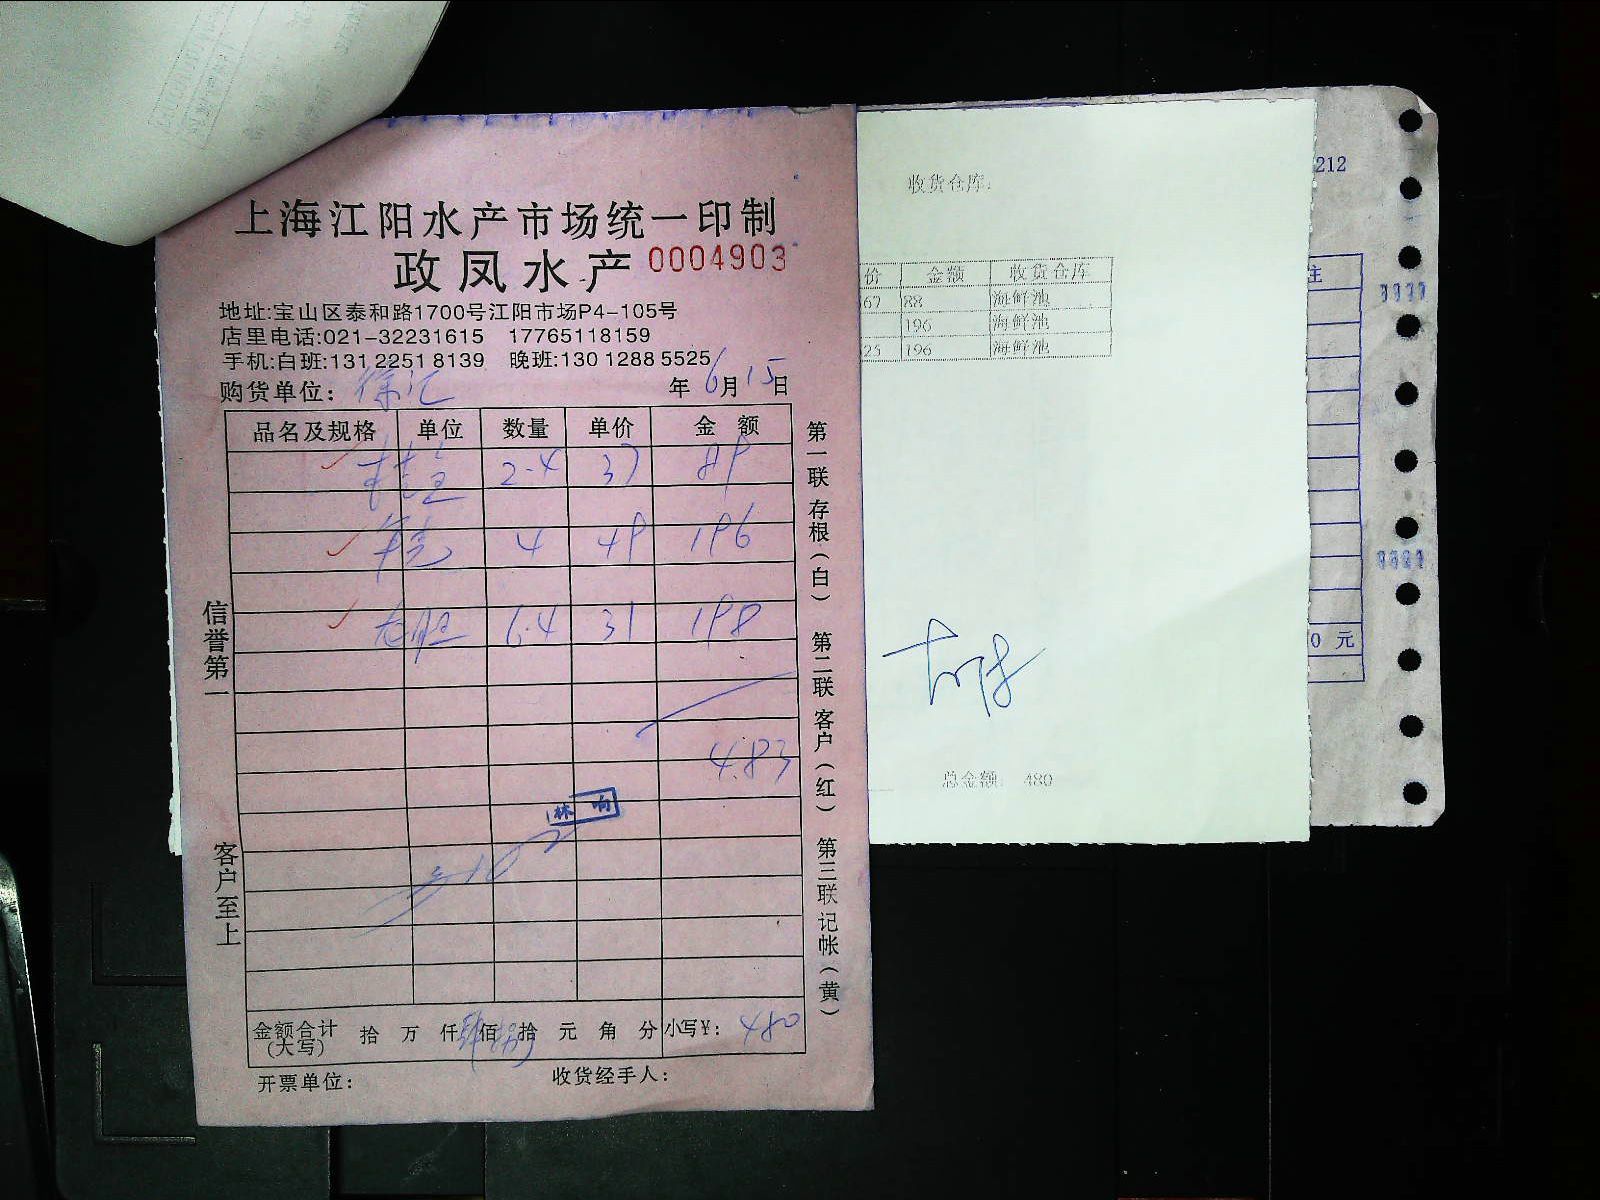 上海江阳水产市场统一印制
政凤水产 0004903
地址:宝山区泰和路1700号江阳市场P4-105号
店里电话:021-32231615 17765118159
手机:白班:131 2251 8139 晚班:130 1288 5525
购货单位: 徐汇 年 6月 15日
品名及规格 单位 数量 单价 金额
2.4 37 89
4 49 196
6.4 31 198
483
林 响
金额合计(大写) 拾 万 仟 佰 拾 元 角 分 小写¥: 480
开票单位: 收货经手人:
信誉第一
客户至上
第一联存根(白) 第二联客户(红) 第三联记帐(黄)
收货仓库:
价 金额 收货仓库
67 88 海鲜池
196 海鲜池
25 196 海鲜池
总金额: 480
212
注
0 元